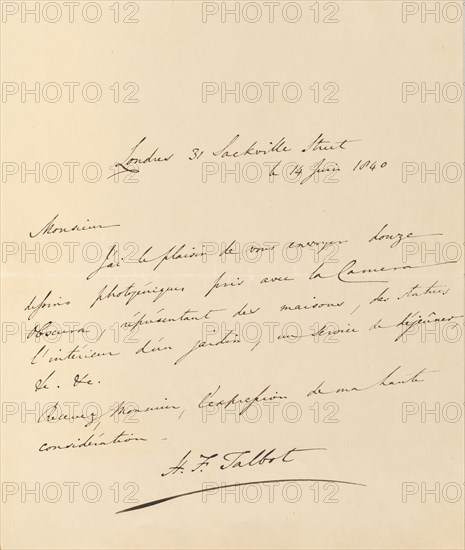 Londres 31 Sackville Street
le 14 Juin 1840
Monsieur
J'ai le plaisir de vous envoyer douze
dessins photogéniques pris avec la Camera
Obscura, réprésentant des maisons, des statues
l'intérieur d'un jardin, un service de déjeûner,
&c. &c.
Recevez, Monsieur, l'expression de ma haute
considération –
H. F. Talbot
PHOTO 12